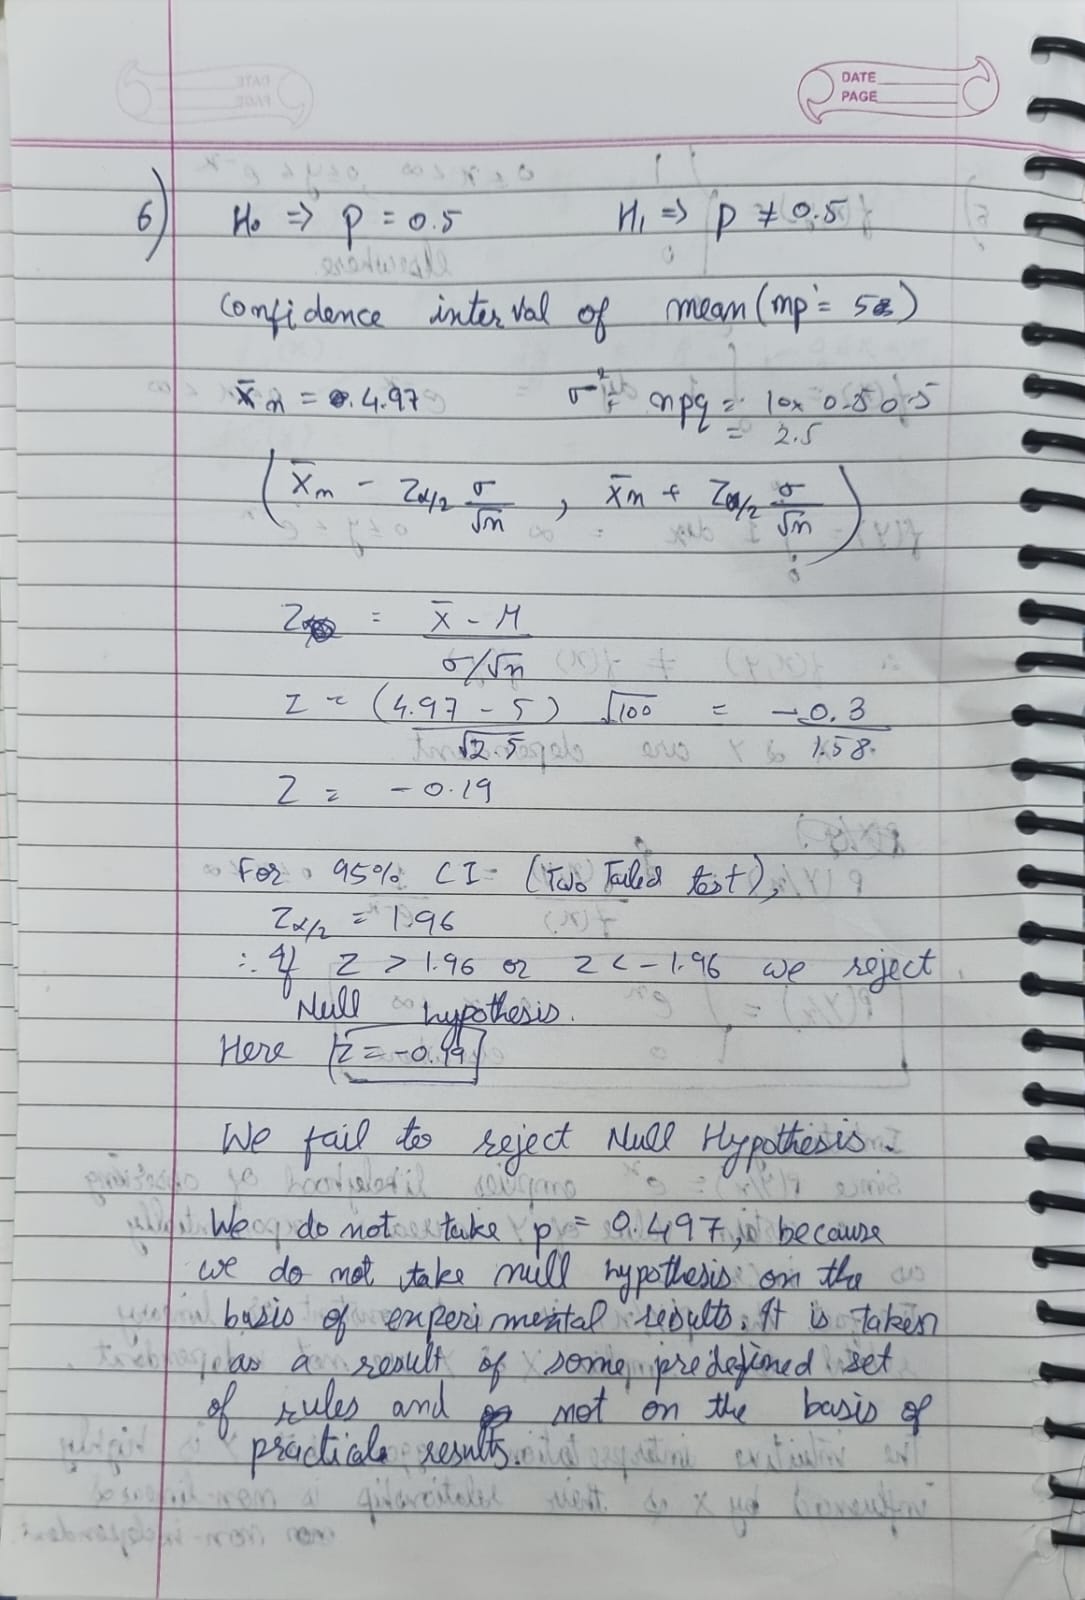 DATE
PAGE
6) H₀ => p = 0.5 H₁ => p ≠ 0.5
Confidence interval of mean (mp = 5)
x̄n = 4.97 σ² = npq = 10x 0.5 0.5
= 2.5
(X̄n - Zα/2 σ/√n , X̄n + Zα/2 σ/√n)
Z = (X̄ - M)/(σ/√n)
Z = (4.97 - 5) √100/√2.5 = -0.3/1.58
Z = -0.19
For 95% CI (Two Tailed test),
Zα/2 = 1.96
∴ If Z > 1.96 or Z < -1.96 we reject
Null hypothesis.
Here Z = -0.19
We fail to reject Null Hypothesis.
We do not take p = 0.497, because
we do not take null hypothesis on the
basis of experimental results. It is taken
as a result of some predefined set
of rules and not on the basis of
practical results.